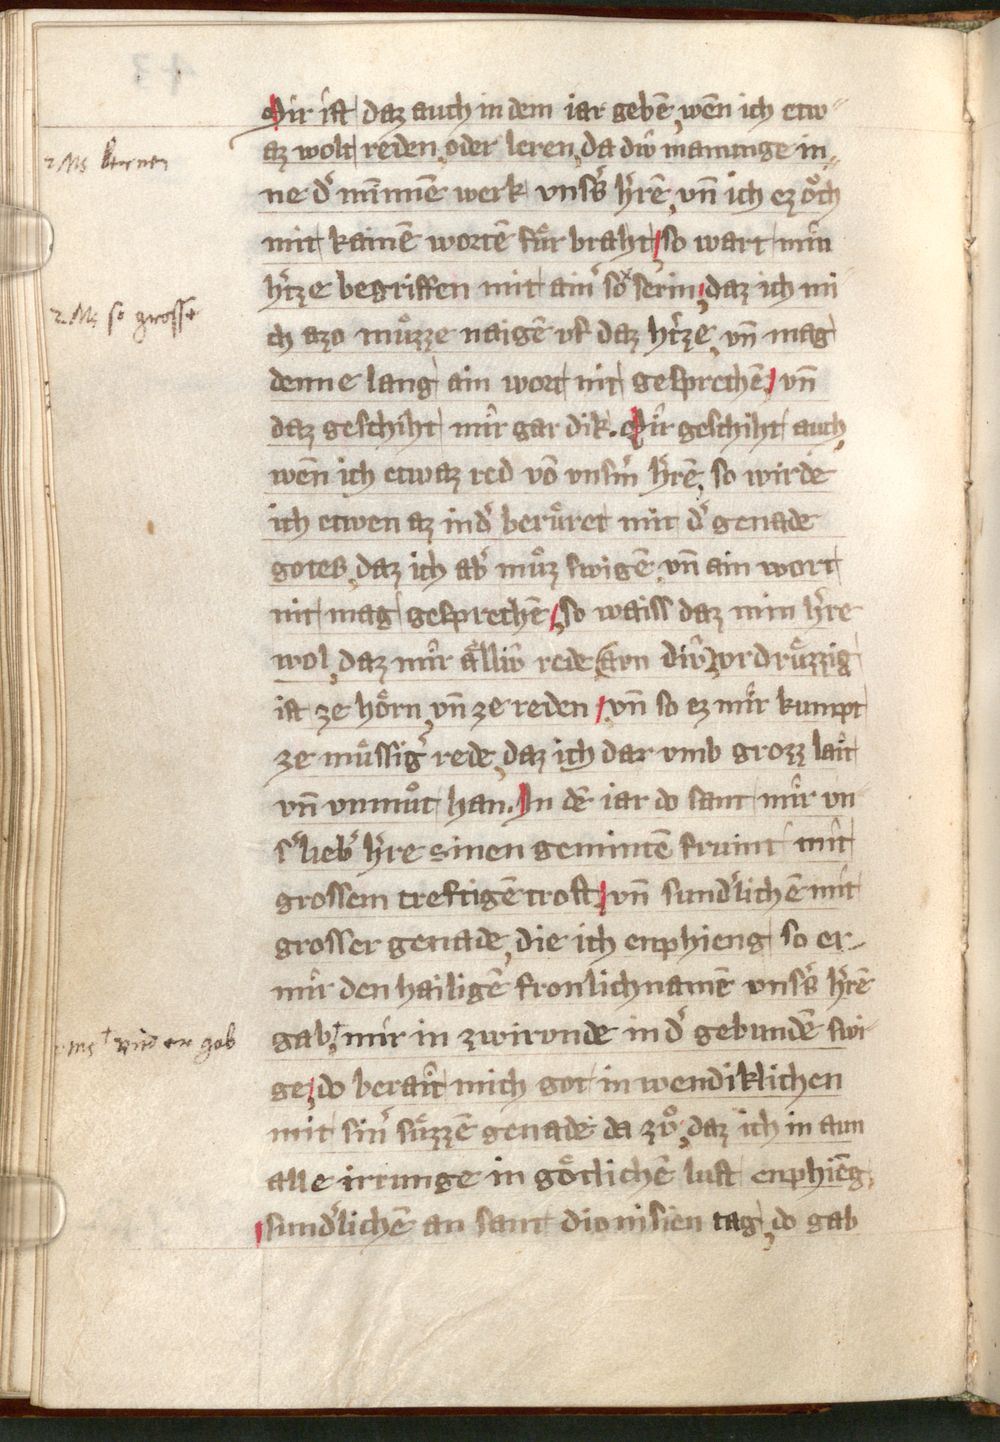 Mir ist daz auch in dem iar gebē wēn ich etw-
az wolt reden oder leren da diͮ mainunge in-
2. Ms lernen
ne dˢ minnē werk vnsˢs hˢrē vn̄ ich ez oͤch
mit kainē wortē fuͤr braht so wart min
hˢtze begriffen mit ainˢ so serin daz ich mi
2. Ms so grosse
ch azo muͤzze naigē vf daz hˢtze vn̄ mag
denne lang ain wort nit gesprechē vn̄
daz geschiht mir gar dik. Mir geschiht auch
wēn ich etwaz red vō vnsˢm hˢrē so wirde
ich etwen az indˢ beruͤret mit dˢ genade
gotes daz ich abˢ muͦz swigē vn̄ ain wort
nit mag gesprechē so waiss daz min hˢre
wol daz mir aͤlliͮ rede (avn diͮ) vrdruͤzzig
ist ze hoͤrn vn̄ ze reden vn̄ so ez mir kumpt
ze muͤssigˢ rede daz ich dar vmb grozz lait
vn̄ vnmuͦt han. In dē iar do sant mir vn
sˢ liebˢ hˢre sinen gemintē fruint mit
grossem creftigē trost vn̄ sundˢlichē mit
grosser genade die ich enphieng so er
mir den hailigē fronlichnamē vnsˢs hˢrē
gab† mir in zwirvnde in dˢ gebundē swi
2. Ms † und er gab
ge do berait mich got in wendiklichen
mit sinˢ suͤzzē genade da zuͦ daz ich in aun
alle irrunge in goͤtlichē lust enphiēg
sundˢlichē an sant dionisien tag do gab